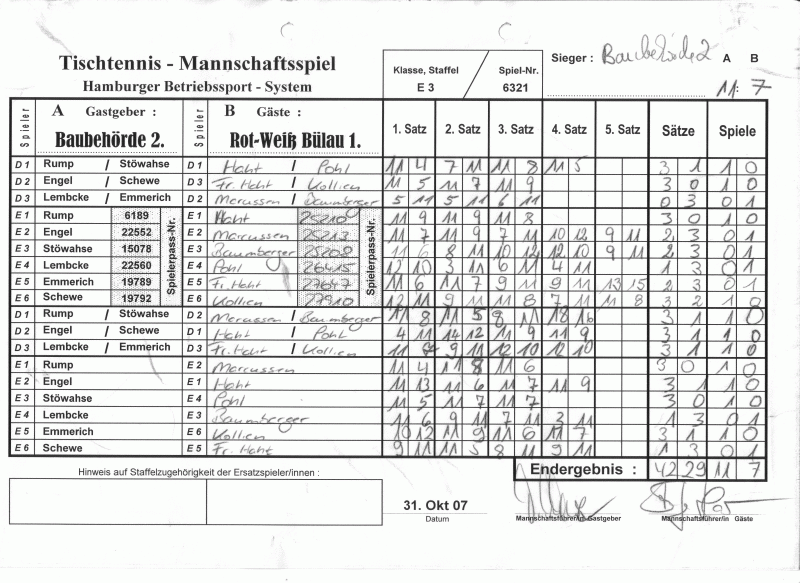 Tischtennis - Mannschaftsspiel
Hamburger Betriebssport - System
Klasse, Staffel / Spiel-Nr.
E 3 6321
Sieger : Baubehörde 2 A B
11 : 7
Spieler A Gastgeber : Spieler B Gäste : 1. Satz 2. Satz 3. Satz 4. Satz 5. Satz Sätze Spiele
Baubehörde 2. Rot-Weiß Bülau 1.
D 1 Rump / Stöwahse D 1 Haht / Pohl 11 4 7 11 11 8 11 5 3 1 1 0
D 2 Engel / Schewe D 3 Fr. Haht / Kollien 11 5 11 7 11 9 3 0 1 0
D 3 Lembcke / Emmerich D 2 Marcussen / Baumberger 5 11 5 11 6 11 0 3 0 1
E 1 Rump 6189 E 1 Haht 25210 11 9 11 9 11 8 3 0 1 0
E 2 Engel 22552 E 2 Marcussen 25213 11 7 11 9 7 11 10 12 9 11 2 3 0 1
E 3 Stöwahse 15078 E 3 Baumberger 25208 11 6 8 11 10 12 12 10 9 11 2 3 0 1
E 4 Lembcke 22560 E 4 Pohl 26415 12 10 3 11 6 11 4 11 1 3 0 1
E 5 Emmerich 19789 E 5 Fr. Haht 27647 11 6 11 7 9 11 9 11 13 15 2 3 0 1
E 6 Schewe 19792 E 6 Kollien 27910 12 11 9 11 11 8 7 11 11 8 3 2 1 0
Spielerpass-Nr. Spielerpass-Nr.
D 1 Rump / Stöwahse D 2 Marcussen / Baumberger 11 8 11 5 8 11 18 16 3 1 1 0
D 2 Engel / Schewe D 1 Haht / Pohl 4 11 14 12 11 9 11 9 3 1 1 0
D 3 Lembcke / Emmerich D 3 Fr. Haht / Kollien 11 9 11 12 10 12 10 3 1 1 0
E 1 Rump E 2 Marcussen 11 4 11 8 11 6 3 0 1 0
E 2 Engel E 1 Haht 11 13 11 6 11 7 11 9 3 1 1 0
E 3 Stöwahse E 4 Pohl 11 5 11 7 11 7 3 0 1 0
E 4 Lembcke E 3 Baumberger 11 6 9 11 7 11 3 11 1 3 0 1
E 5 Emmerich E 6 Kollien 10 12 11 9 11 6 11 7 3 1 1 0
E 6 Schewe E 5 Fr. Haht 9 11 11 5 8 11 9 11 1 3 0 1
Hinweis auf Staffelzugehörigkeit der Ersatzspieler/innen :
Endergebnis : 42 29 11 7
31. Okt 07
Datum Mannschaftsführer/in Gastgeber Mannschaftsführer/in Gäste